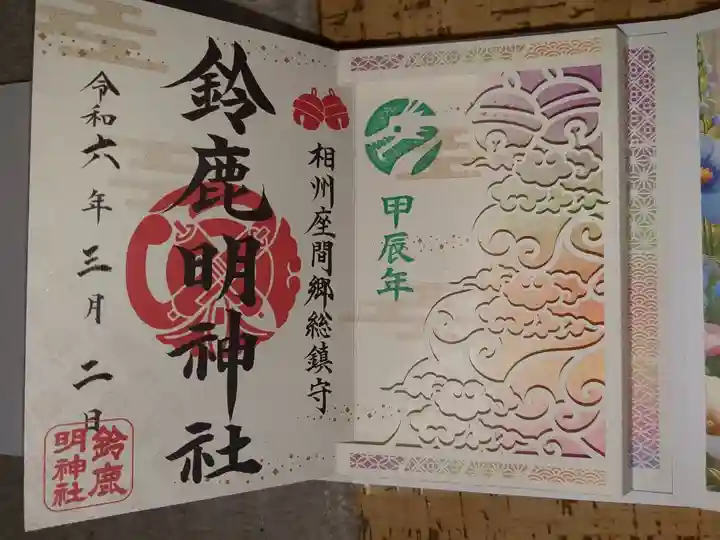 甲辰年
相州座間郷総鎮守
鈴鹿明神社
令和六年三月二日
鈴鹿
明神社